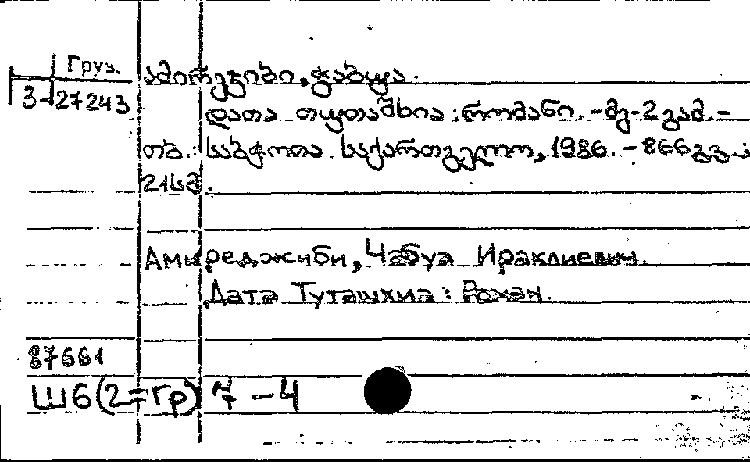 Груз.
3-27243
ამირეჯიბი, ჭაბუა.
დათა თუთაშხია : რომანი. -მე-2 გამ. -
თბ. : საბჭოთა საქართველო, 1986. - 866გვ. ;
21სმ.
Амиреджиби, Чабуа Ираклиевич.
Дата Туташхиа : Роман.
87661
Ш6(2=Гр)7-4